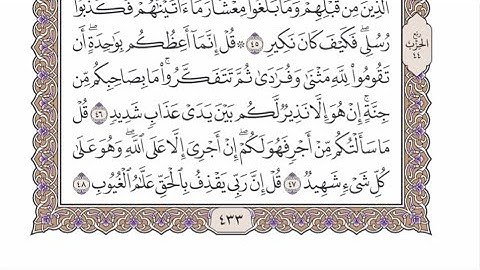 ٱلَّذِينَ مِن قَبْلِهِمْ وَمَا بَلَغُوا۟ مِعْشَارَ مَآ ءَاتَيْنَٰهُمْ فَكَذَّبُوا۟
رُسُلِى فَكَيْفَ كَانَ نَكِيرِ ٤٥ ۞ قُلْ إِنَّمَآ أَعِظُكُم بِوَٰحِدَةٍ أَن
ربع
الحزب
٤٤
تَقُومُوا۟ لِلَّهِ مَثْنَىٰ وَفُرَٰدَىٰ ثُمَّ تَتَفَكَّرُوا۟ مَا بِصَاحِبِكُم مِّن
جِنَّةٍ إِنْ هُوَ إِلَّا نَذِيرٌ لَّكُم بَيْنَ يَدَىْ عَذَابٍ شَدِيدٍ ٤٦ قُلْ
مَا سَأَلْتُكُم مِّنْ أَجْرٍ فَهُوَ لَكُمْ إِنْ أَجْرِىَ إِلَّا عَلَى ٱللَّهِ وَهُوَ عَلَىٰ
كُلِّ شَىْءٍ شَهِيدٌ ٤٧ قُلْ إِنَّ رَبِّى يَقْذِفُ بِٱلْحَقِّ عَلَّٰمُ ٱلْغُيُوبِ ٤٨
٤٣٣